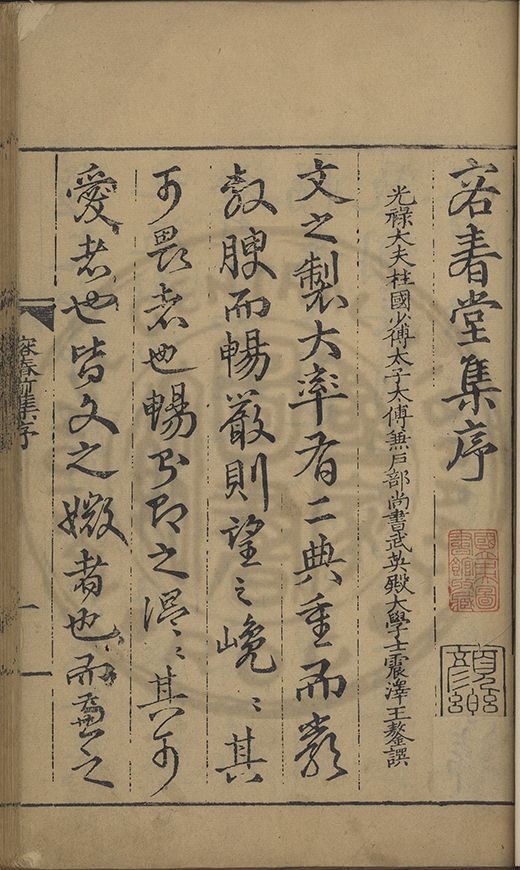 容春堂集序
光祿大夫柱國少傅太子太傅兼戶部尚書武英殿大學士震澤王鏊譔
文之製大率有二典重而嚴
敷腴而暢嚴則望之巉〻其
可畏者也暢則即之溫〻其可
愛者也皆文之媺者也而之
容春前集序
一
國家圖
書館藏